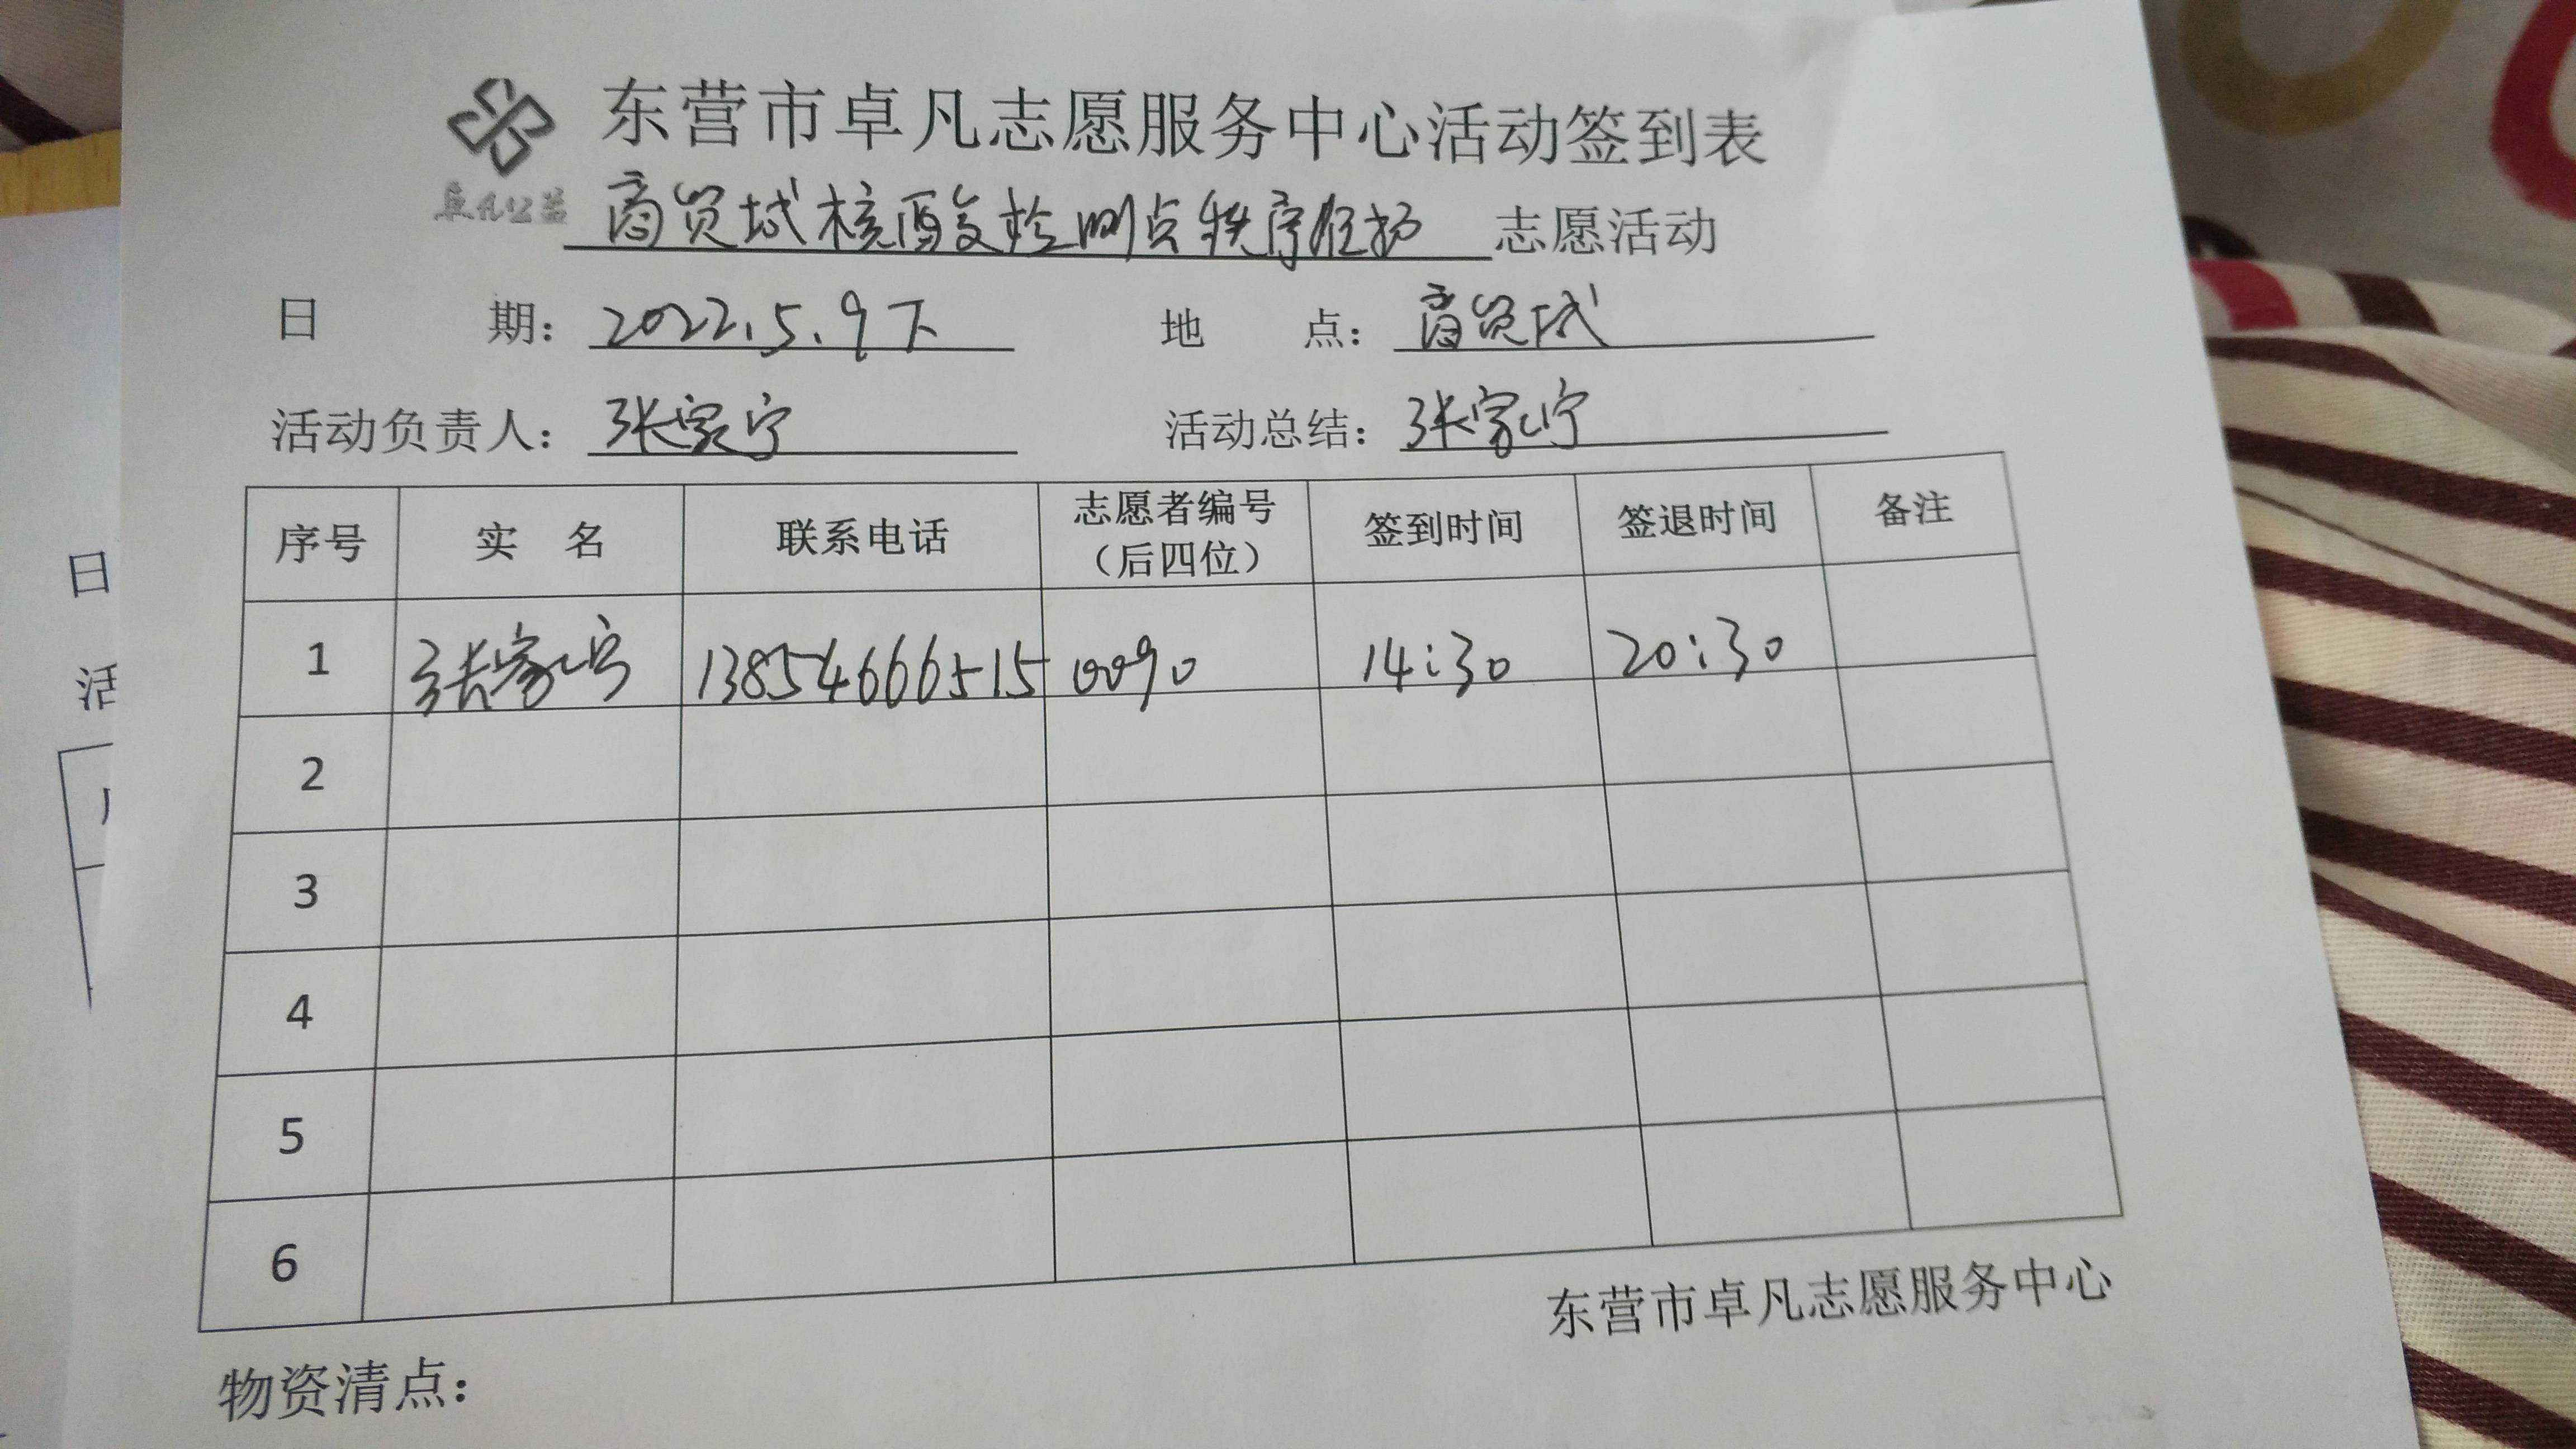 东营市卓凡志愿服务中心活动签到表
卓凡公益
商贸城核酸检测点秩序维护 志愿活动
日 期：2022.5.9下 地 点：商贸城
活动负责人：张家宁 活动总结：张家宁
序号 实 名 联系电话 志愿者编号（后四位） 签到时间 签退时间 备注
1 张家宁 13854666515 0090 14:30 20:30
2
3
4
5
6
东营市卓凡志愿服务中心
物资清点：
日
活